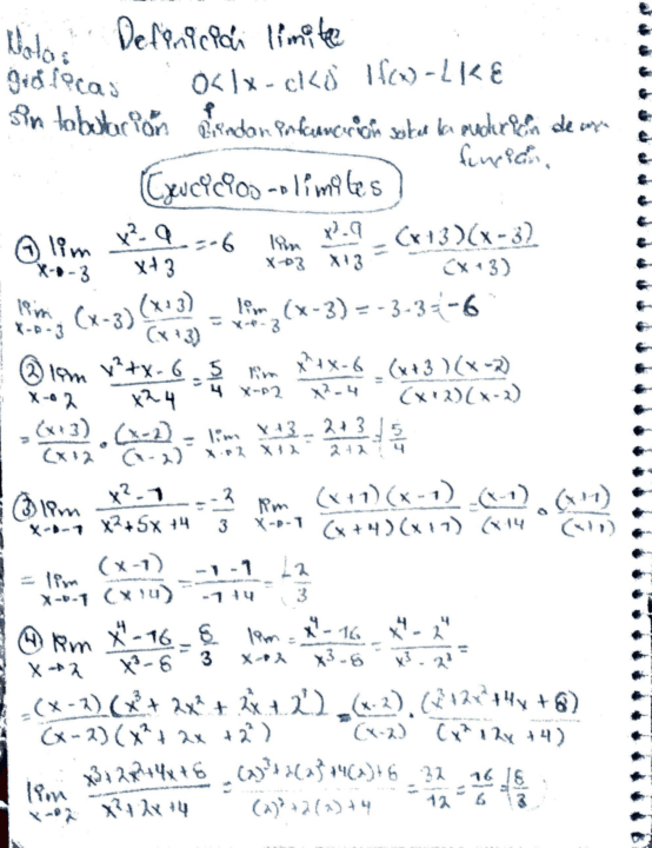 Notas Definición límite
gráficas 0<|x-c|<δ |f(x)-L|<ε
sin tabulación Brindan información sobre la evolución de una
función.
Ejercicios → límites
① lim x→-3 (x²-9)/(x+3) = -6 lim x→3 (x²-9)/(x+3) = (x+3)(x-3)/(x+3)
lim x→-3 (x-3) (x+3)/(x+3) = lim x→-3 (x-3) = -3-3 = -6
② lim x→2 (x²+x-6)/(x²-4) = 5/4 lim x→2 (x²+x-6)/(x²-4) = (x+3)(x-2)/(x+2)(x-2)
= (x+3)/(x+2 · (x-2)/(x-2) = lim x→2 (x+3)/(x+2) = (2+3)/(2+2) = 5/4
③ lim x→-1 (x²-1)/(x²+5x+4) = -2/3 lim x→-1 (x+1)(x-1)/(x+4)(x+1) = (x-1)/(x+4 · (x+1)/(x+1)
= lim x→-1 (x-1)/(x+4) = (-1-1)/(-1+4) = -2/3
④ lim x→2 (x⁴-16)/(x³-8) = 8/3 lim x→2 = (x⁴-16)/(x³-8) = (x⁴-2⁴)/(x³-2³) =
= (x-2)(x³+2x²+2²x+2³)/(x-2)(x²+2x+2²) = (x-2)/(x-2) · (x³+2x²+4x+8)/(x²+2x+4)
lim x→2 (x³+2x²+4x+8)/(x²+2x+4) = ((2)³+2(2)²+4(2)+8)/((2)²+2(2)+4) = 32/12 = 16/6 = 8/3